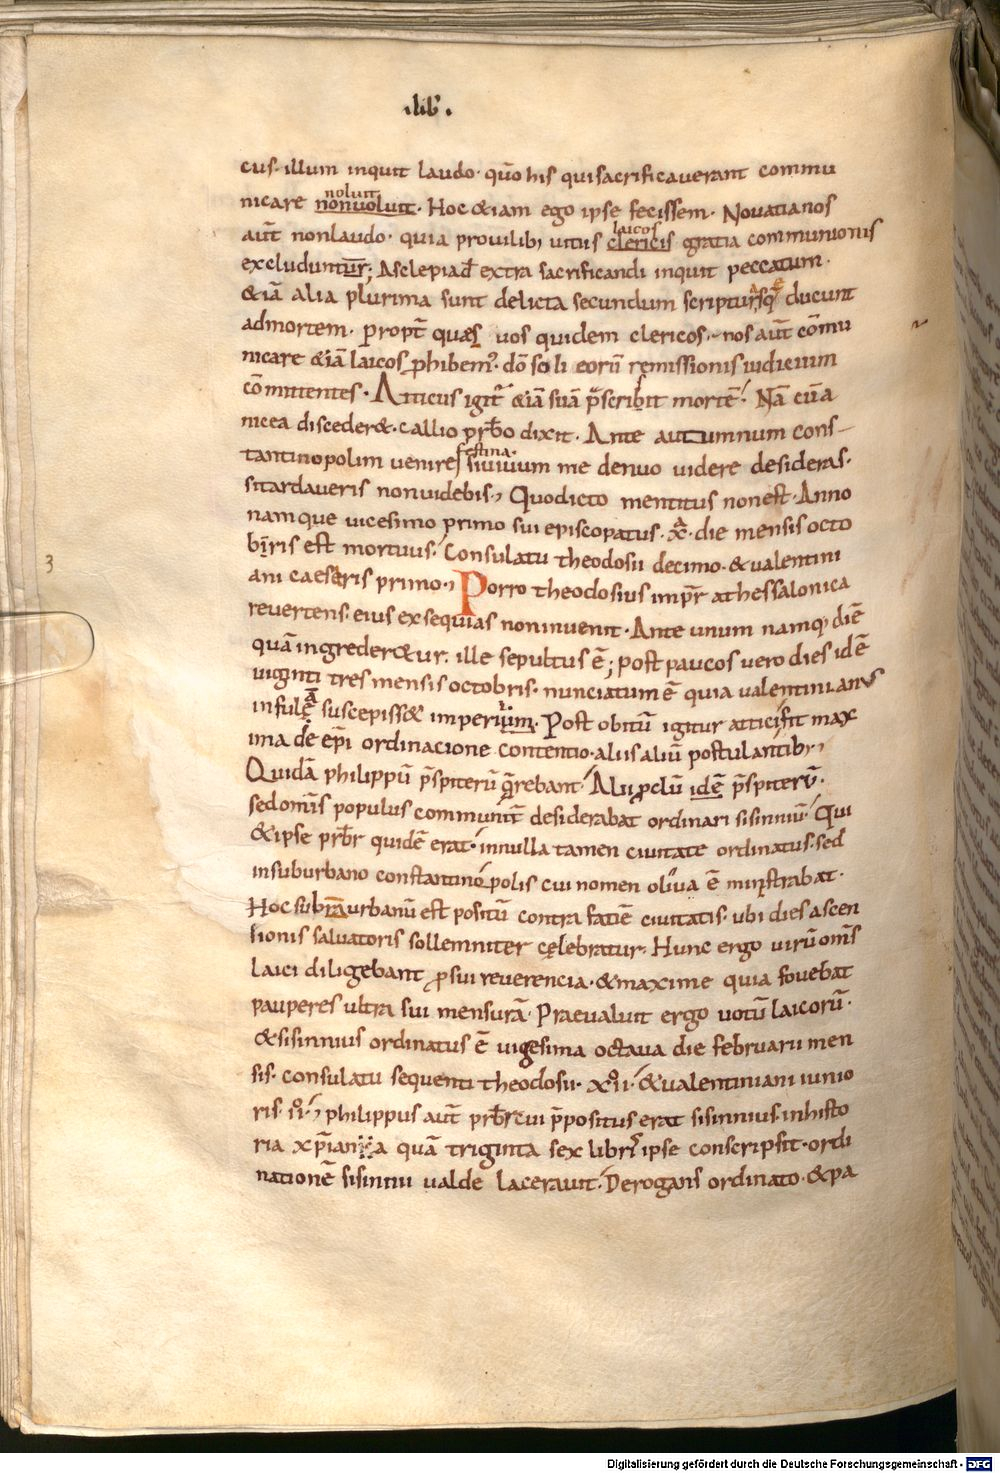 ·lib̅·
cus· illum inquit laudo· quo̅ his qui sacrificauerant commu
nolunt
nicare nonuolunt· Hoc &iam ego ipse fecissem· Nouatianos
laicos
aut̅ nonlaudo· quia prouilib; uitiis clericis gratia communionis
excluduntur̅; Asclepiad̅ extra sacrificandi inquit peccatum·
&ia̅ alia plurima sunt delicta secundum scripturasq; ducunt
admortem· propt̅ quaes uos quidem clericos· nos aut̅ co̅mu
nicare &ia̅ laicos ꝓhibem᾽· do̅ soli eoru̅ remissionis iudicium
co̅mittentes· Atticus igit̅ &ia̅ sua̅ p̅scribit morte̅· Na̅ cu̅ a
nicea disceder&· callio pr̅bo dixit· Ante autumnum cons-
festina·
tantinopolim uenire siuiuum me denuo uidere desideras·
sitardaueris nonuidebis· Quodicto mentitus non est· Anno
namque uicesimo primo sui episcopatus· x̊· die mensis octo
bris est mortuus· Consulatu theodosii decimo· & ualentini
ani caesaris primo· Porro theodosius imp̅r athessalonica
reuertens· eius exsequias noninuenit· Ante unum namq; die̅
qua̅ ingreder&ur· ille sepultus e̅; post paucos uero dies ide̅
uiginti tres mensis octobris· nunciatum e̅ quia ualentinianus
infulę suscepiss& imperium· Post obitu̅ igitur attici fit max
ima de ep̅i ordinacione contentio· aliis aliu̅ postulantib;
Quida̅ philippu̅ p̅spiteru̅ q̅rebant· Alii ꝓclu̅ ide̅ p̅spiteru̅·
sed om̅is populus communit̅ desiderabat ordinari sisinniu̅· Qui
& ipse pr̅br quide̅ erat· innulla tamen ciuitate ordinatus· sed
insuburbano constantinopolis cui nomen oliua e̅ ministrabat·
Hoc suburbanu̅ est positu̅ contra facie̅ ciuitatis· ubi dies ascen
sionis saluatoris sollemniter cęlebratur· Hunc ergo uiru̅ om̅s
laici diligebant ꝓ sui reuerencia· & maxime quia fouebat
pauperes ultra sui mensura̅· Praeualuit ergo uotu̅ laicoru̅·
& sisinnius ordinatus e̅ uigesima octaua die februarii men
sis· consulatu sequenti theodosii· xii· & ualentiniani iunio
ris· ii· philippus aut̅ pr̅br cui p̅positus erat sisinnius· inhisto
ria xp̅iana qua̅ triginta sex libris ipse conscripsit· ordi
natione̅ sisinnii ualde lacerauit· Derogans ordinato· & pa
3
Digitalisierung gefördert durch die Deutsche Forschungsgemeinschaft - DFG